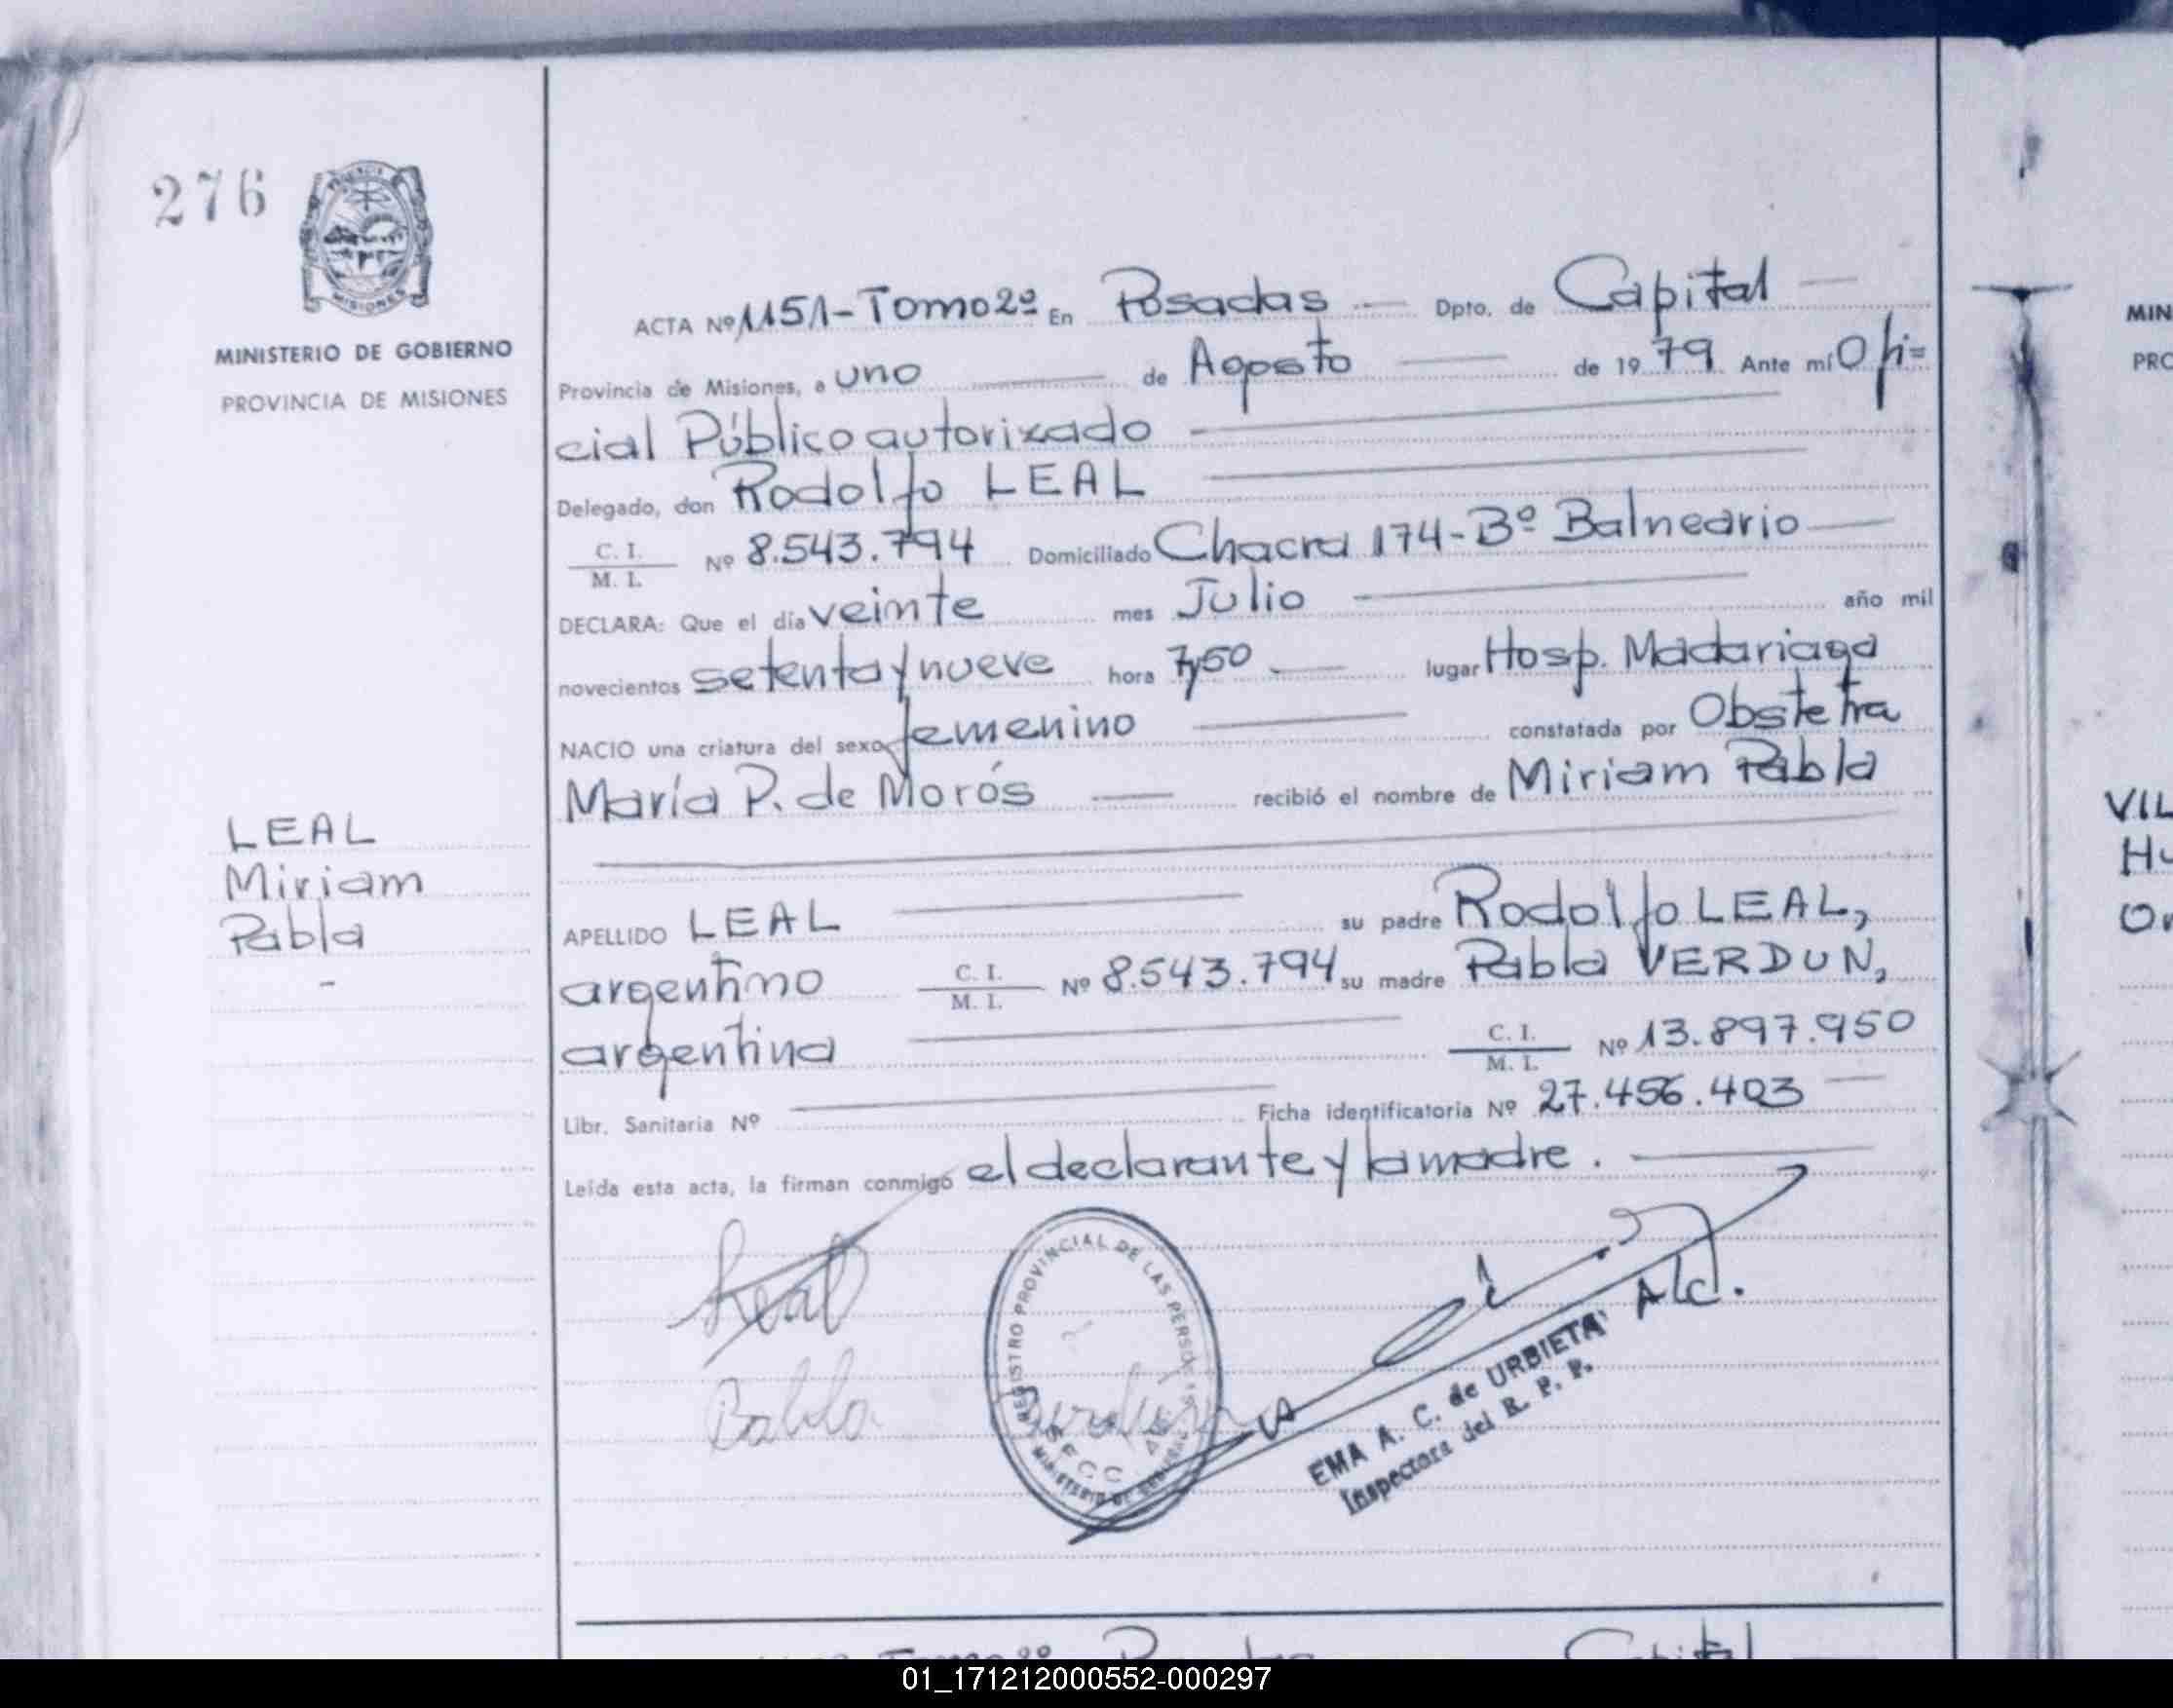 276
MINISTERIO DE GOBIERNO
PROVINCIA DE MISIONES
LEAL
Miriam
Pabla
-
ACTA Nº 1151-Tomo 2º En Posadas Dpto. de Capital
Provincia de Misiones, a uno de Agosto de 1979 Ante mí Ofi=
cial Público autorizado
Delegado, don Rodolfo LEAL
C. I.
M. I. Nº 8.543.794 Domiciliado Chacra 174-Bº Balneario
DECLARA: Que el día veinte mes Julio año mil
novecientos setenta y nueve hora 7,50 lugar Hosp. Madariaga
NACIO una criatura del sexo femenino constatada por Obstetra
María P. de Morós recibió el nombre de Miriam Pabla
APELLIDO LEAL su padre Rodolfo LEAL,
argentino C. I.
M. I. Nº 8.543.794 su madre Pabla VERDUN,
argentina C. I.
M. I. Nº 13.897.950
Libr. Sanitaria Nº Ficha identificatoria Nº 27.456.403
Leída esta acta, la firman conmigo el declarante y la madre.
Leal
REGISTRO PROVINCIAL DE LAS PERSONAS
MINISTERIO DE GOBIERNO
EMA A. C. de URBIETA
Inspectora del R. P. P.
MIN
PRO
VIL
Hu
Or
01_171212000552-000297